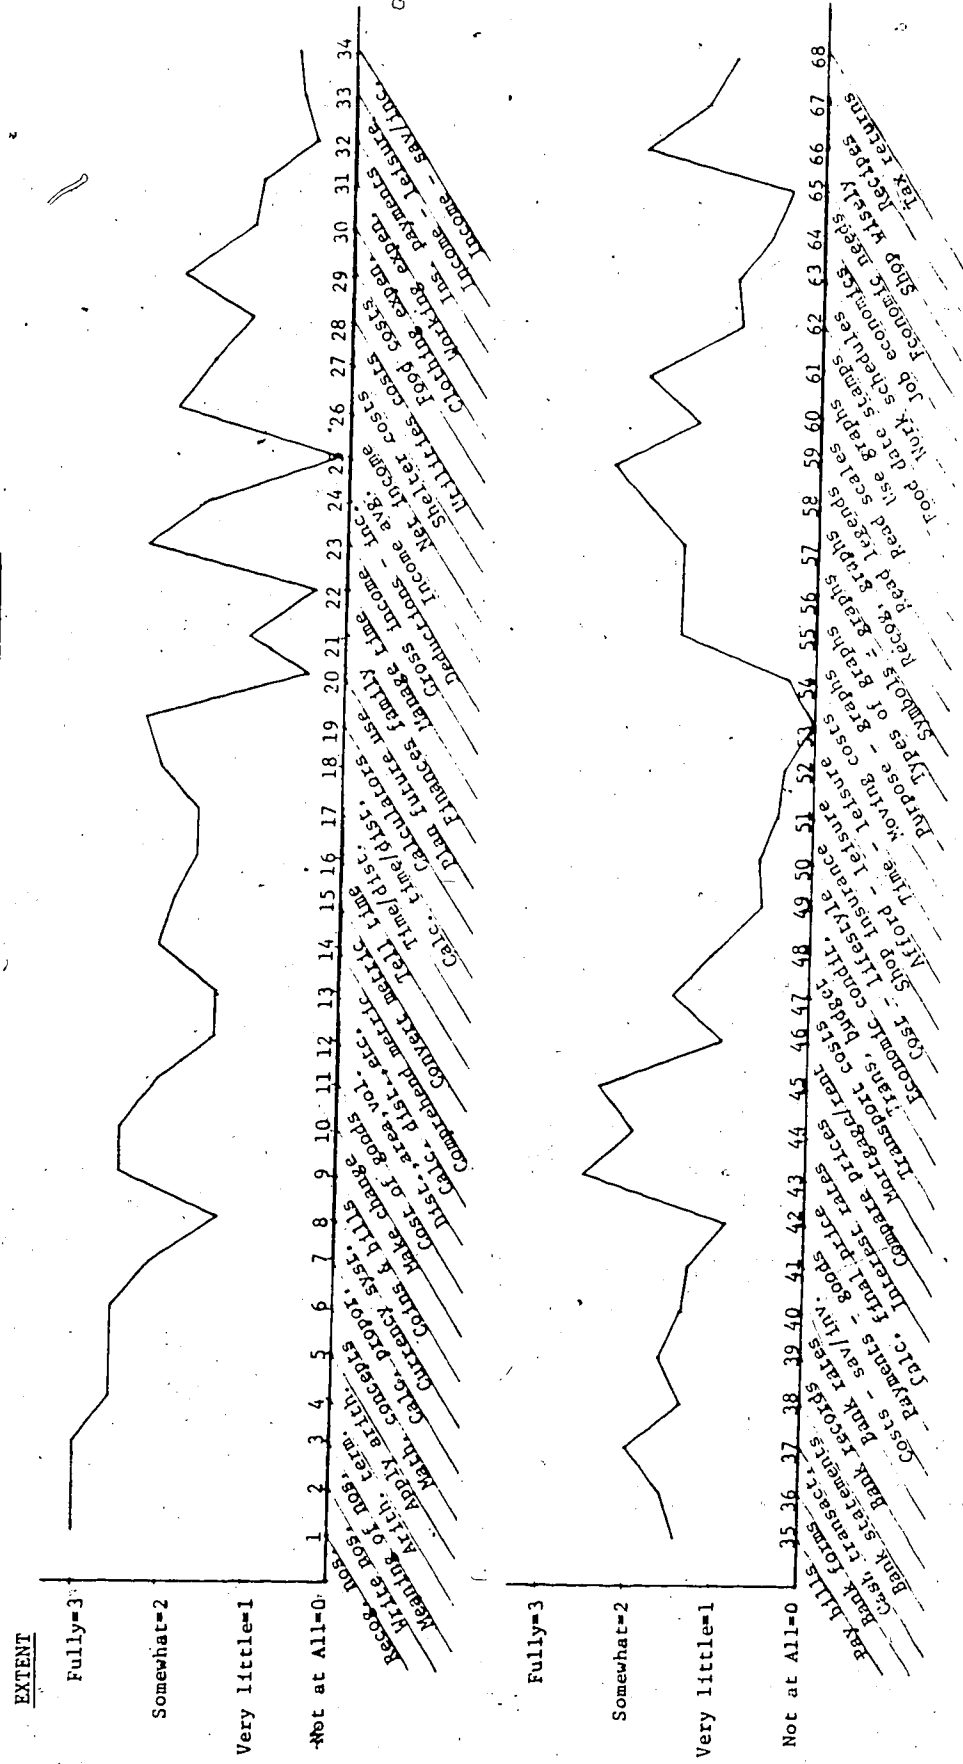 EXTENT
Fully=3
Somewhat=2
Very little=1
Not at All=0
1 2 3 4 5 6 7 8 9 10 11 12 13 14 15 16 17 18 19 20 21 22 23 24 25 26 27 28 29 30 31 32 33 34
Recog. nos.
Write nos.
Meaning of nos.
Arith. term.
Apply arith.
Math. concepts
Calc. propor.
Currency syst.
Coins & bills
Make change
Cost of goods
Dist., area, vol.
Calc. dist., etc.
Comprehend metric
Convert metric
Tell time
Time/dist.
Calc. time/dist.
Calculators use
Plan future
Finances family
Manage time
Gross income
Deductions - inc.
Income avg.
Net income
Shelter costs
Utilities costs
Food costs
Clothing expen.
Working expen.
Ins. payments
Income - leisure
Income - sav/inc.
Fully=3
Somewhat=2
Very little=1
Not at All=0
35 36 37 38 39 40 41 42 43 44 45 46 47 48 49 50 51 52 53 54 55 56 57 58 59 60 61 62 63 64 65 66 67 68
Pay bills
Bank forms
Cash transact.
Bank statements
Bank records
Bank rates
Costs - sav/inv.
Payments - goods
Calc. final price
Interest rates
Compare prices
Mortgage/rent costs
Transport costs
Trans. budget
Economic condit.
Cost - lifestyle
Shop insurance
Afford - leisure
Time - leisure
Moving costs
Purpose - graphs
Types of graphs
Symbols - graphs
Recog. graphs
Read legends
Read scales
Use graphs
Food date stamps
Work schedules
Job economics
Economic needs
Shop wisely
Recipes
Tax returns